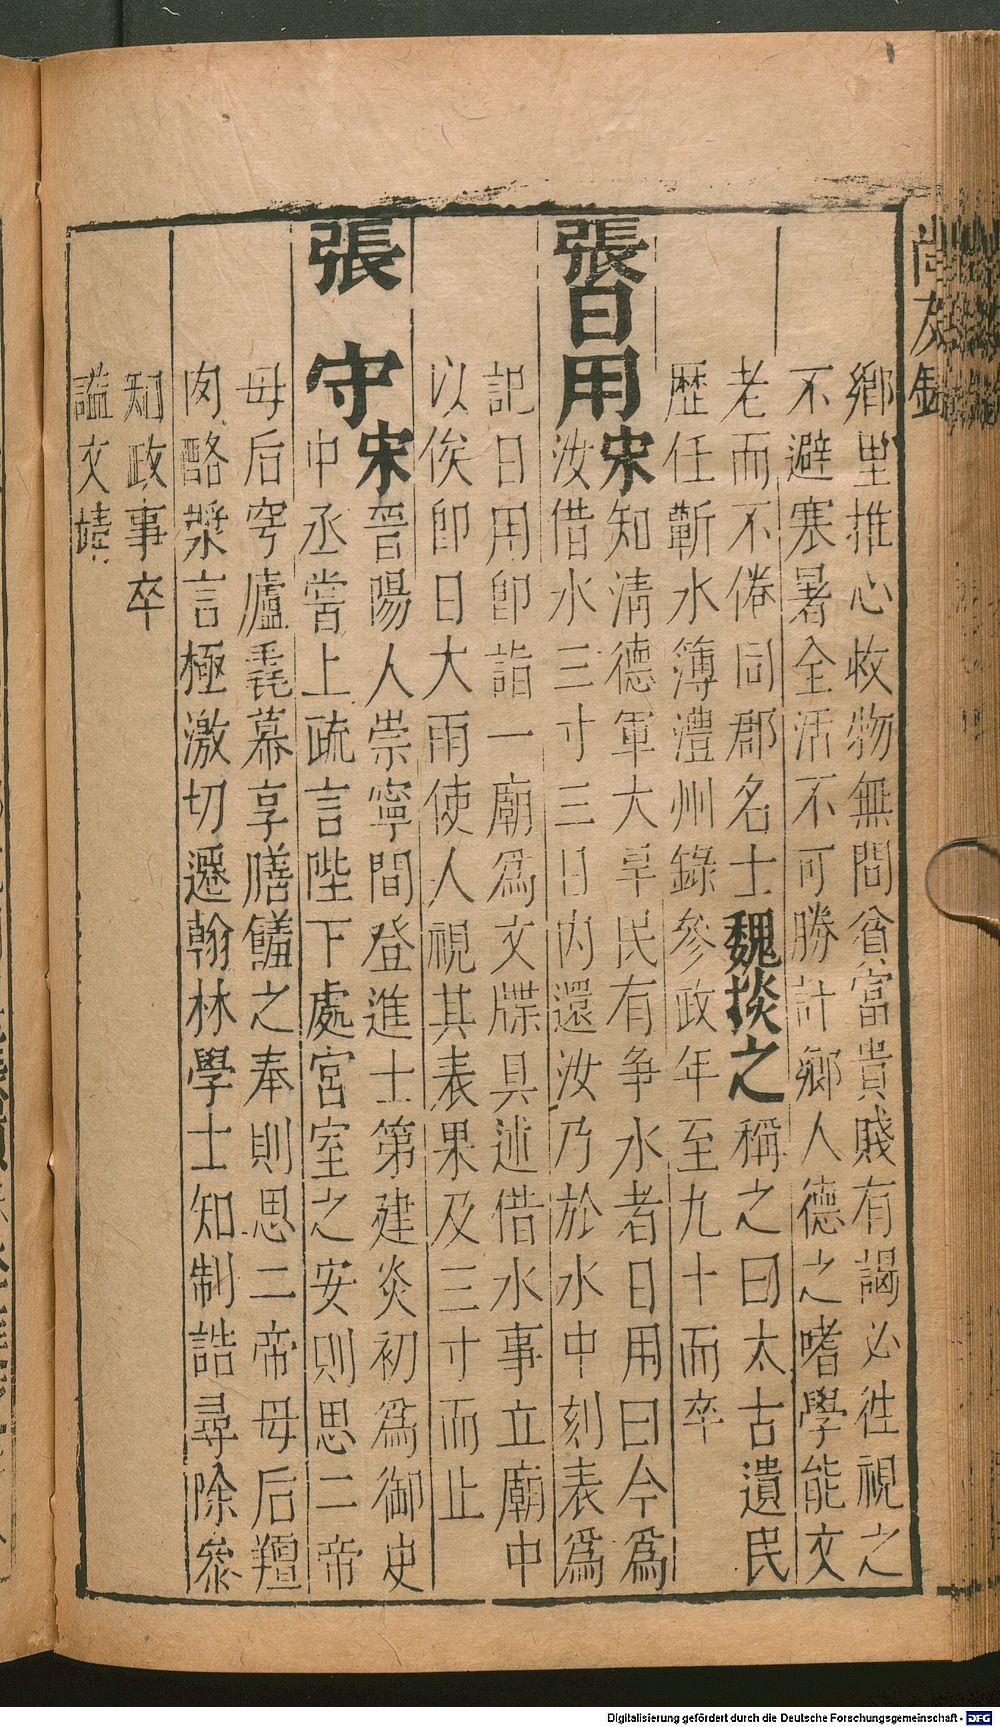 尚友錄
鄉里推心收物無問貧富貴賤有謁必往視之
不避寒暑全活不可勝計鄉人德之嗜學能文
老而不倦同郡名士魏掞之稱之曰太古遺民
歷任蘄水簿澧州錄參政年至九十而卒
張日用宋知清德軍大旱民有争水者日用曰今爲
汝借水三寸三日内還汝乃於水中刻表爲
記日用卽詣一廟爲文牒具述借水事立廟中
以俟卽日大雨使人視其表果及三寸而止
張守宋晉陽人崇寧間登進士第建炎初爲御史
中丞嘗上疏言陛下處宮室之安則思二帝
母后穹廬毳幕享膳羞之奉則思二帝母后羶
肉酪漿言極激切遷翰林學士知制誥尋除叅
知政事卒
謚文靖
Digitalisierung gefördert durch die Deutsche Forschungsgemeinschaft - DFG